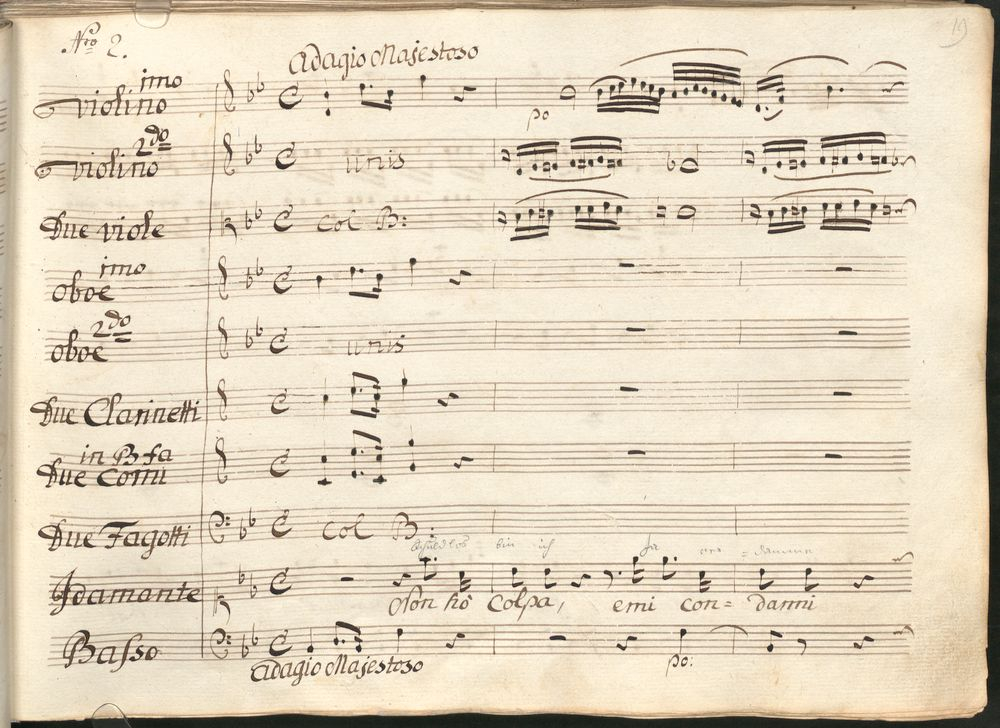 19
Nro 2.
Adagio Majestoso
violino imo
po
violino 2do
unis
Due viole
Col B:
oboe imo
oboe 2do
unis
Due Clarinetti
in B fa
Due Corni
Due Fagotti
Col B:
schuldlos bin ich
Idamante
Non hò colpa, e mi con= danni
Basso
po:
Adagio Majestoso